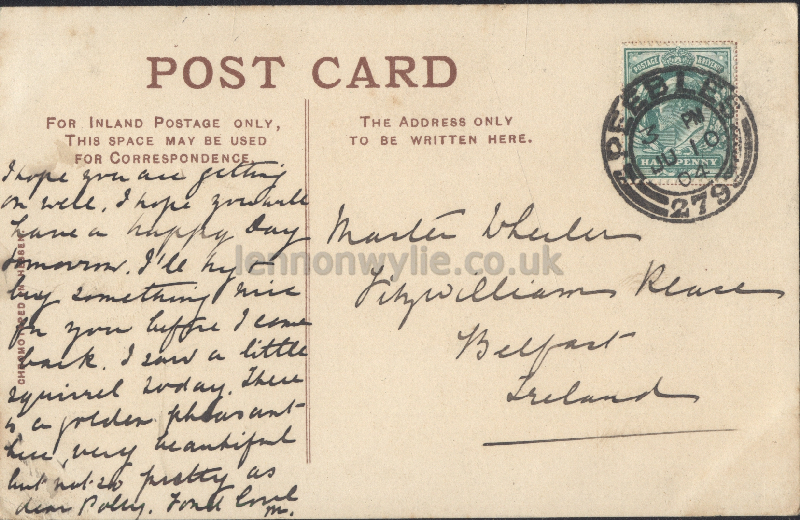 POST CARD
FOR INLAND POSTAGE ONLY,
THIS SPACE MAY BE USED
FOR CORRESPONDENCE
THE ADDRESS ONLY
TO BE WRITTEN HERE.
POSTAGE & REVENUE
HALFPENNY
PEEBLES
3 PM
JU 10
04
279
I hope you are getting
on well. I hope you will
have a happy Day
tomorrow. I'll try to
buy something nice
for you before I come
back. I saw a little
squirrel today. There
is a golden pheasant
here, very beautiful
but not so pretty as
dear Polly. Fond love
M.
Master Wheeler
Fitzwilliam Place
Belfast
Ireland
lennonwylie.co.uk